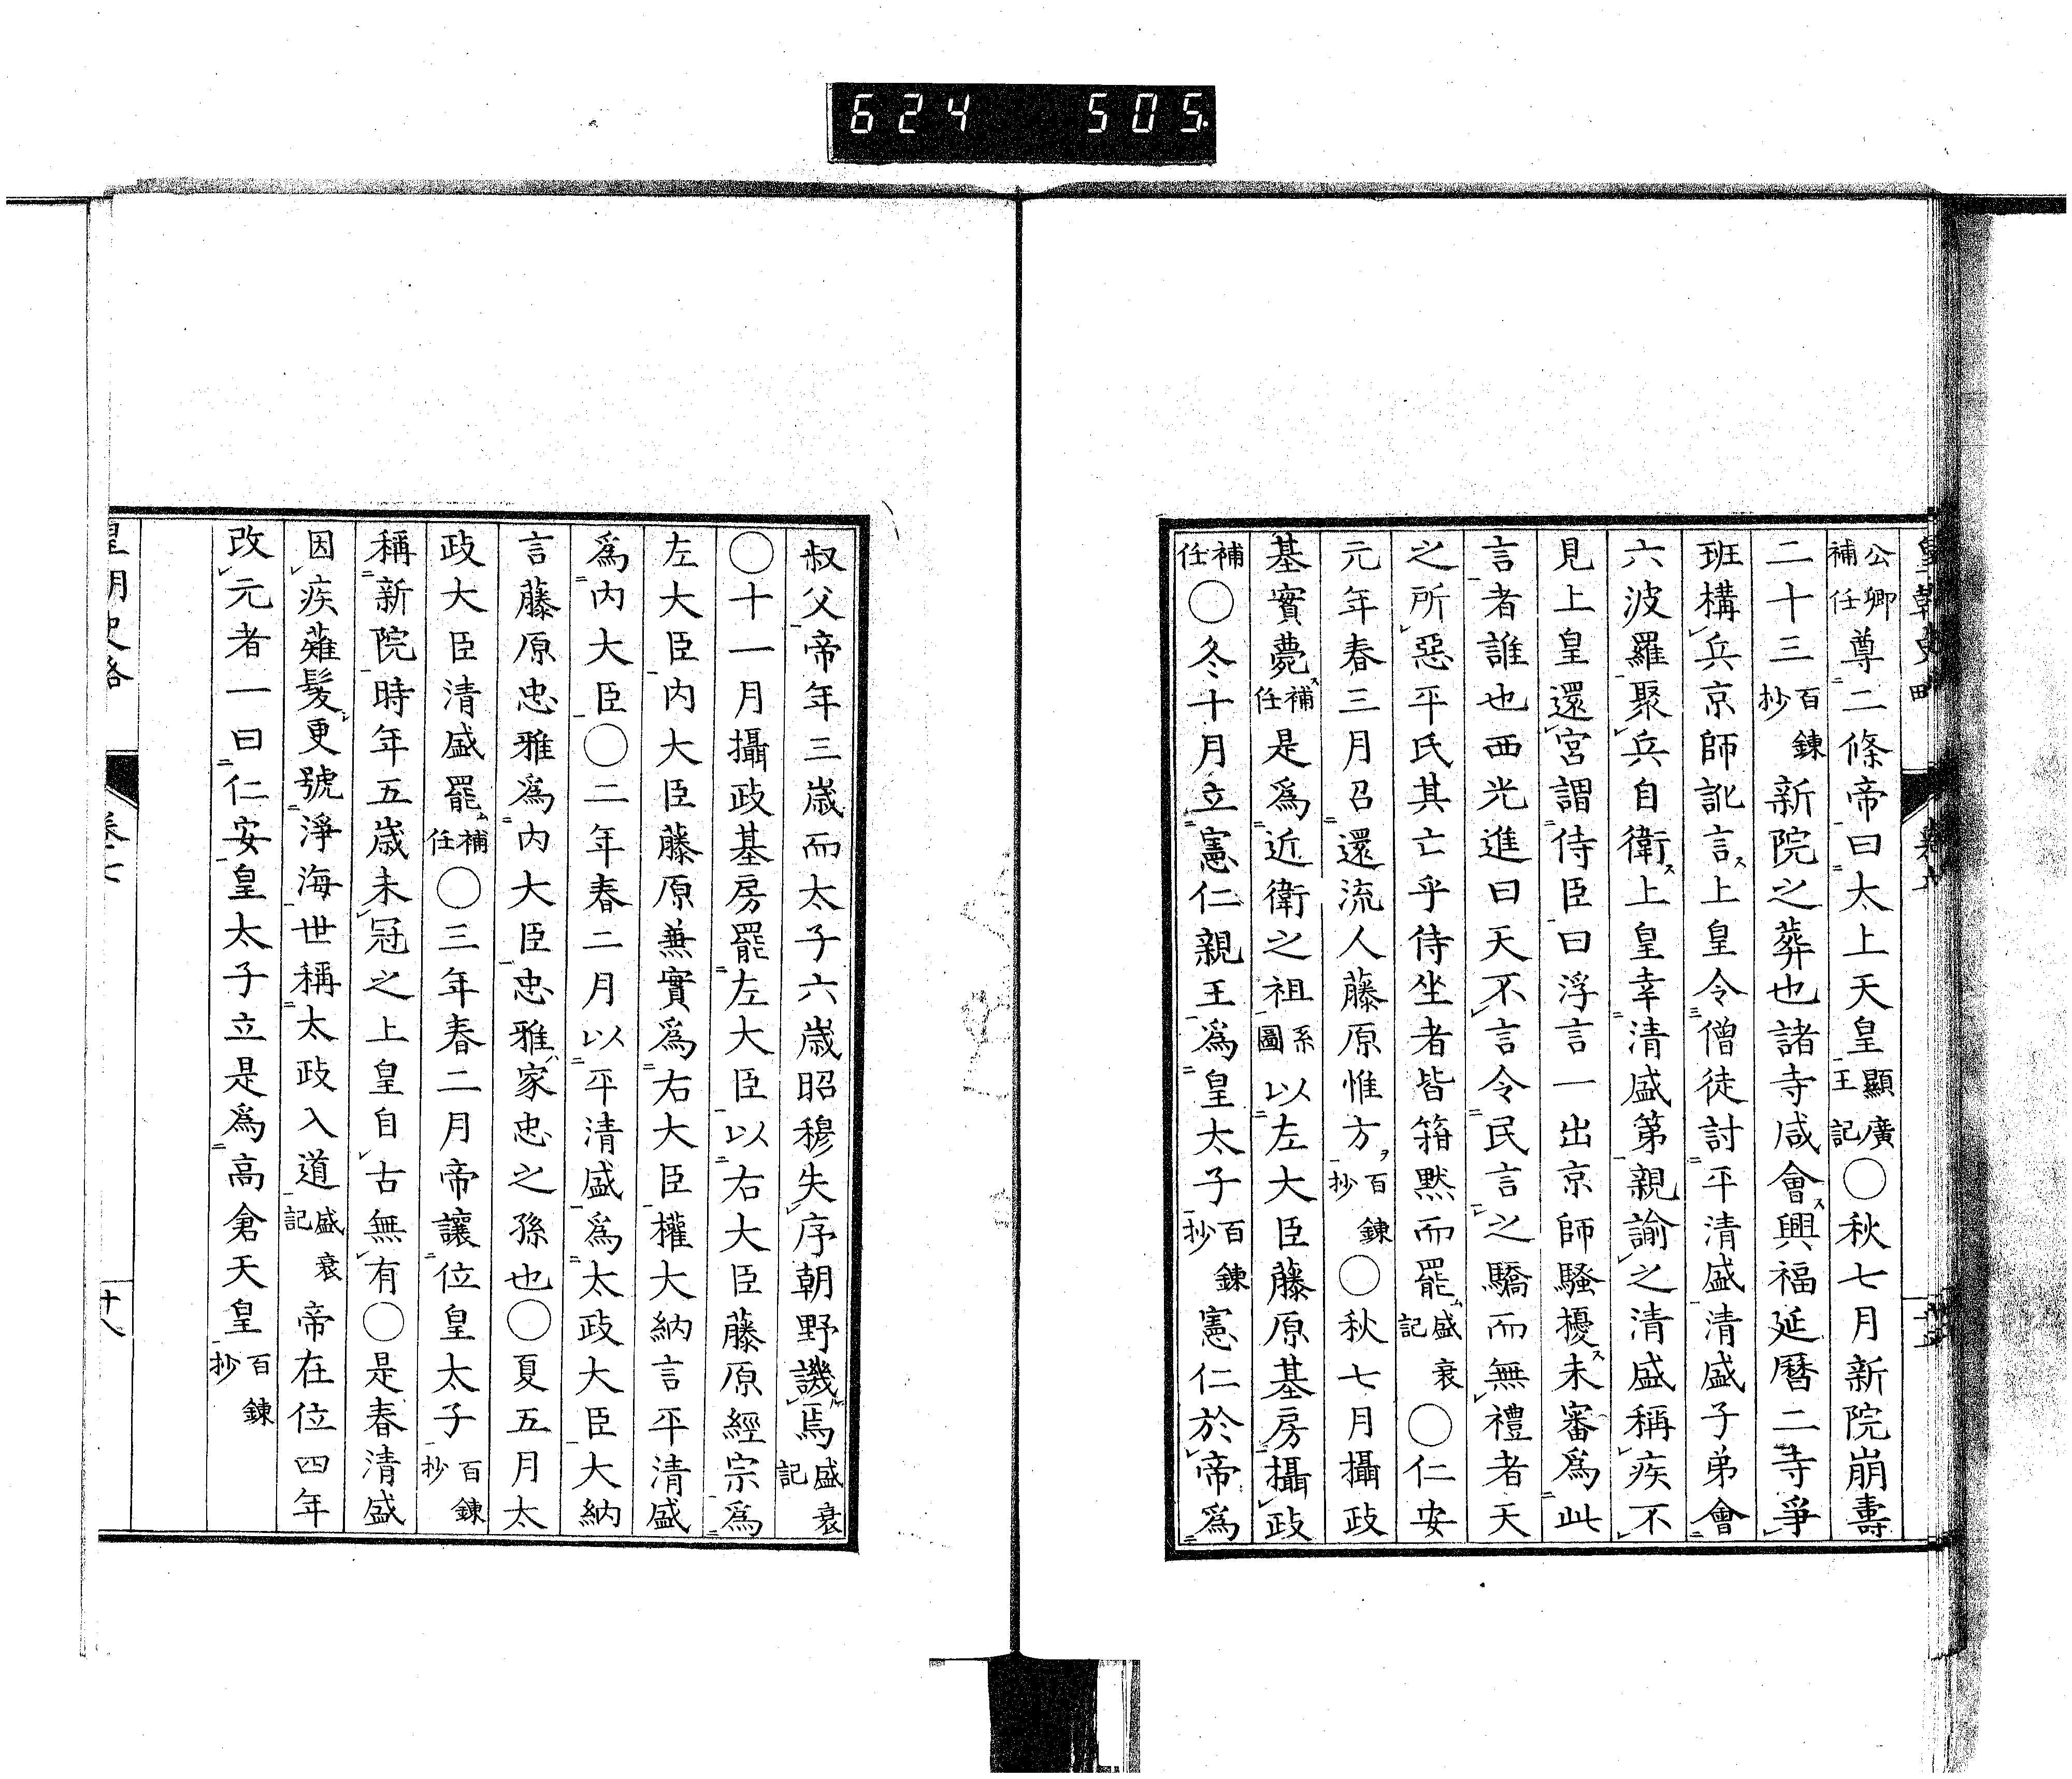 624 505.
公卿補任尊二條帝曰太上天皇顯廣王記○秋七月新院崩壽
二十三百鍊抄新院之葬也諸寺咸會ス興福延曆二寺爭
班構兵京師訛言ス上皇令僧徒討平清盛清盛子弟會
六波羅聚兵自衛ス上皇幸清盛第親諭之清盛稱疾不
見上皇還宮謂侍臣曰浮言一出京師騷擾ス未審爲此
言者誰也西光進曰天不言令民言之驕而無禮者天
之所惡平氏其亡乎侍坐者皆箝黙而罷ム盛衰記○仁安
元年春三月召還流人藤原惟方ヲ百鍊抄○秋七月攝政
基實薨ス補任是爲近衛之祖系圖以左大臣藤原基房攝政
補任○冬十月立憲仁親王爲皇太子百鍊抄憲仁於帝爲
叔父帝年三歲而太子六歲昭穆失序朝野譏焉盛衰記
○十一月攝政基房罷左大臣以右大臣藤原經宗爲
左大臣内大臣藤原兼實爲右大臣權大納言平清盛
爲内大臣○二年春二月以平清盛爲太政大臣大納
言藤原忠雅爲内大臣忠雅ハ家忠之孫也○夏五月太
政大臣清盛罷ム補任○三年春二月帝讓位皇太子百鍊抄
稱新院時年五歲未冠之上皇自古無有○是春清盛
因疾薙髮更號淨海世稱太政入道盛衰記帝在位四年
改元者一曰仁安皇太子立是爲高倉天皇百鍊抄
皇朝史略 卷七 十八